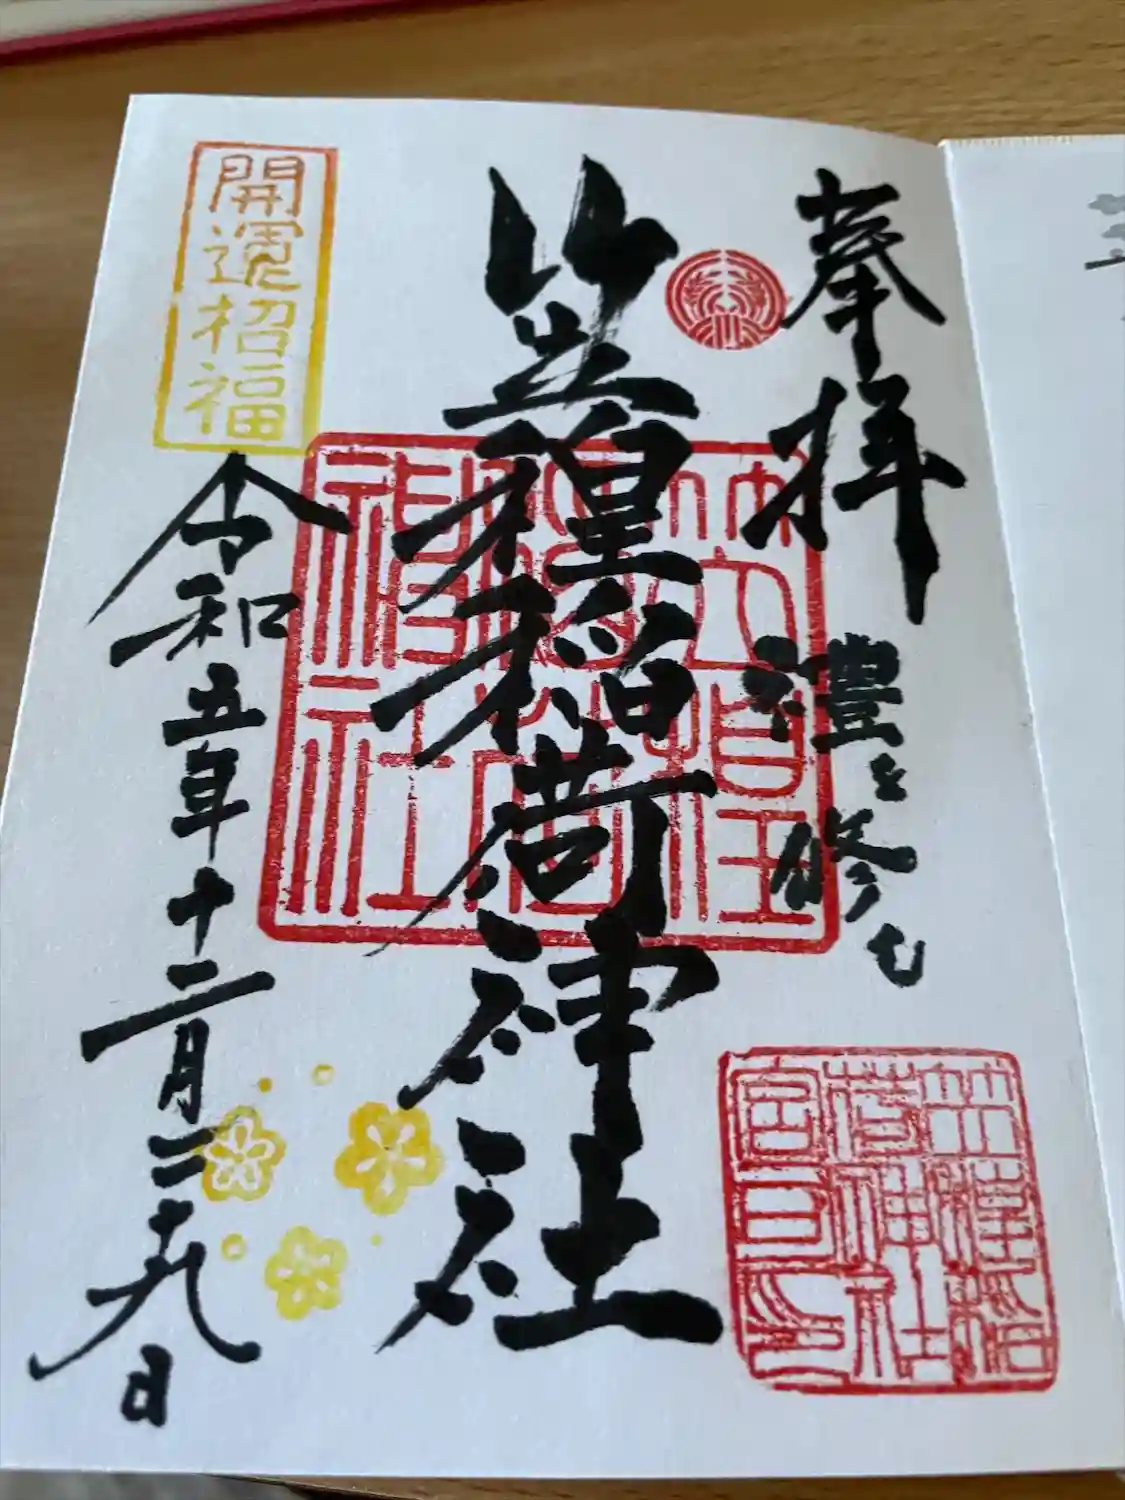 奉拝
禮を修む
笠䅣稲荷神社
令和五年十二月二十九日
開運招福
笠䅣
稲荷
神社
笠䅣稲
荷神社
宮司印